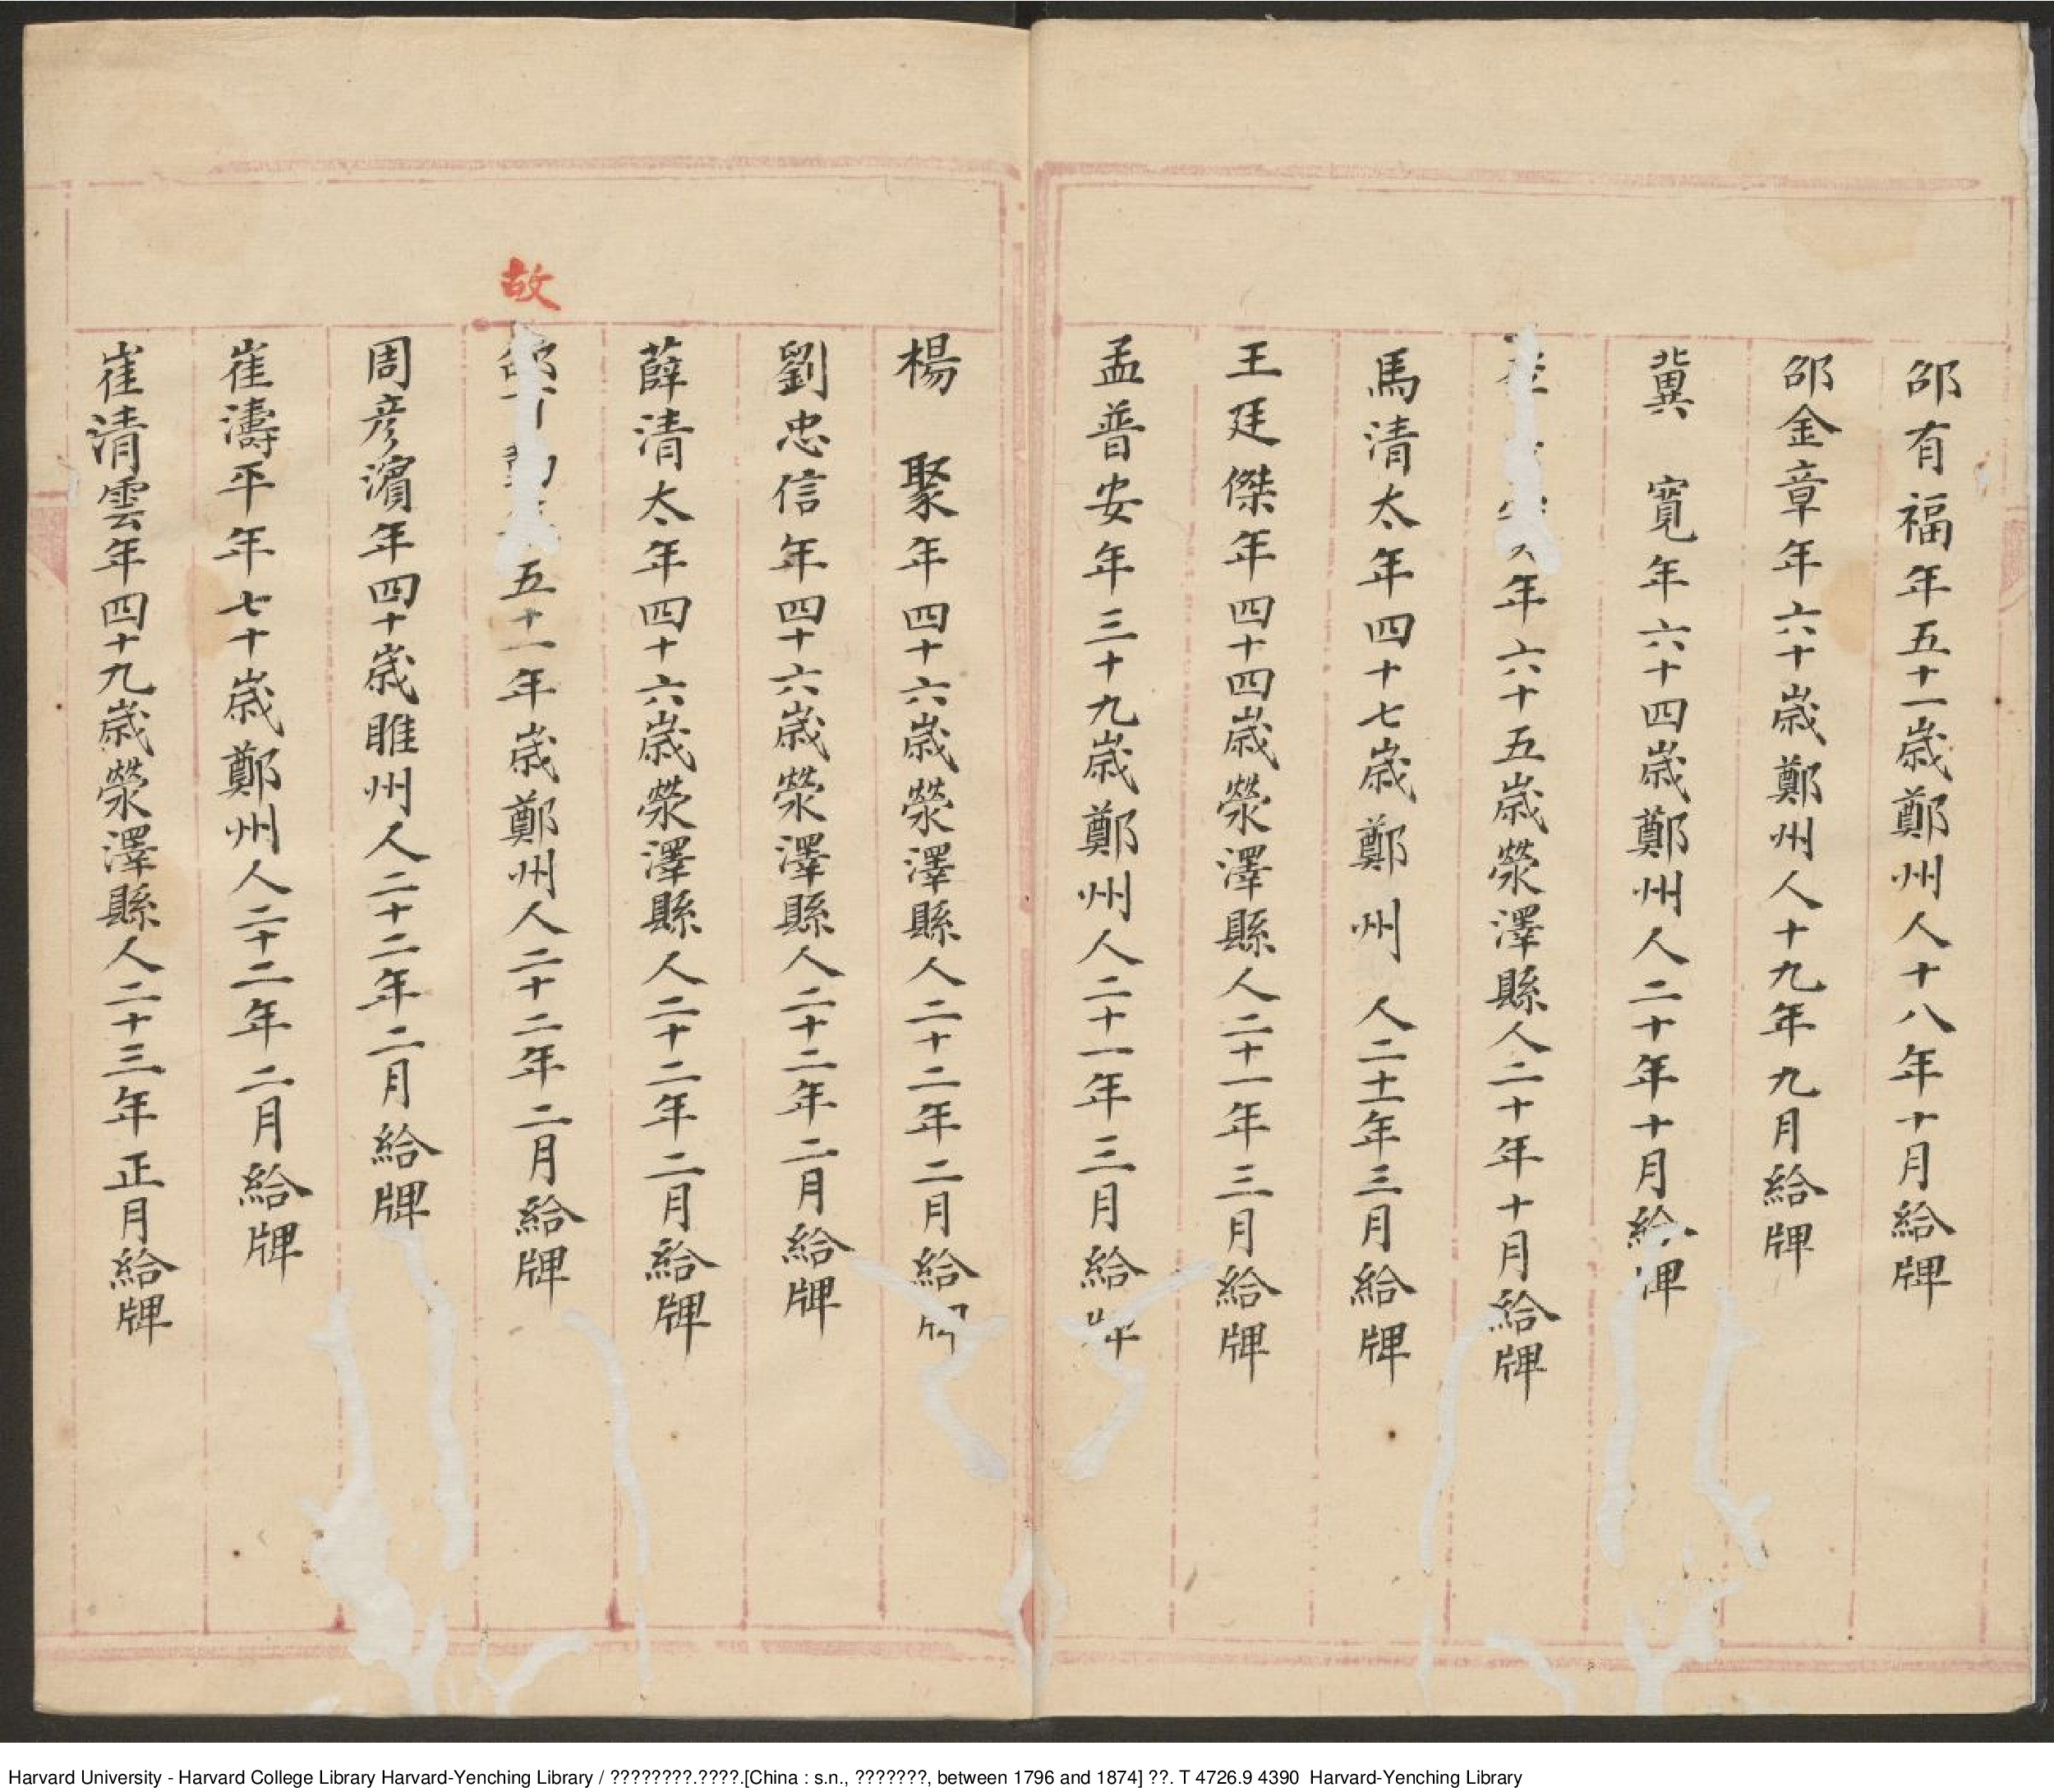 邵有福年五十一歲鄭州人十八年十月給牌
邵金章年六十歲鄭州人十九年九月給牌
冀　寬年六十四歲鄭州人二十年十月給牌
年六十五歲滎澤縣人二十年十月給牌
馬清太年四十七歲鄭州人二十一年三月給牌
王廷傑年四十四歲滎澤縣人二十一年三月給牌
孟普安年三十九歲鄭州人二十一年三月給
楊　聚年四十六歲滎澤縣人二十二年二月給
劉忠信年四十六歲滎澤縣人二十二年二月給牌
薛清太年四十六歲滎澤縣人二十二年二月給牌
故
邵五十一年歲鄭州人二十二年二月給牌
周彥濱年四十歲睢州人二十二年二月給牌
崔濤平年七十歲鄭州人二十二年二月給牌
崔清雲年四十九歲滎澤縣人二十三年正月給牌
Harvard University - Harvard College Library Harvard-Yenching Library / ????????.????.[China : s.n., ???????, between 1796 and 1874] ??. T 4726.9 4390  Harvard-Yenching Library